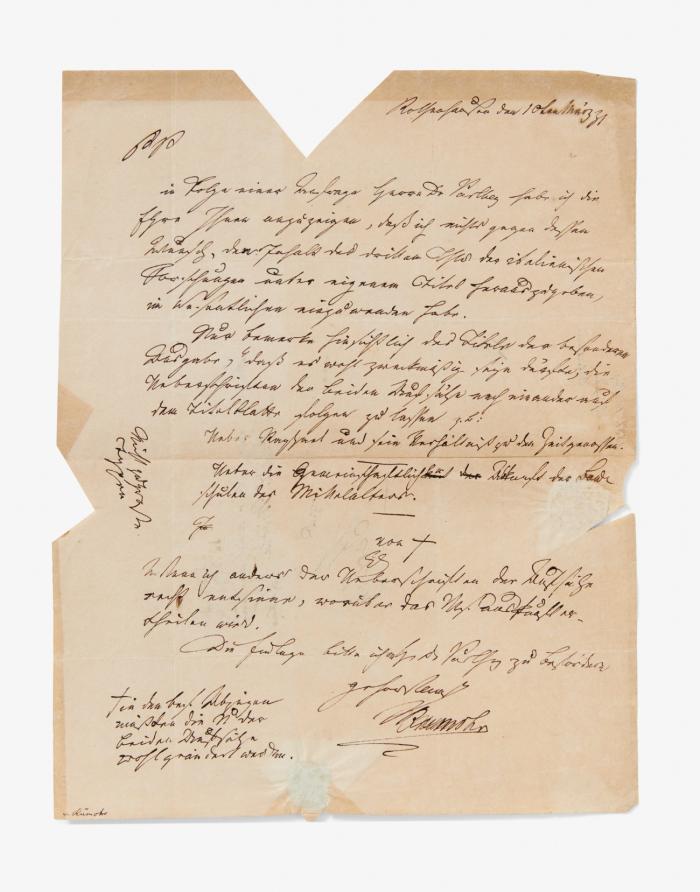 Rothenhausen den 10ten März 31
PP
in Folge einer Anfrage Herrn Dr Parthey habe ich die
Ehre Ihnen anzuzeigen, daß ich nichts gegen dessen
Wunsch, den Inhalt des dritten Theils der italienischen
Forschungen unter eigenem Titel herauszugeben,
im Wesentlichen einzuwenden habe.
Nur bemerke hinsichtlich des Titels der besonderen
Ausgabe, daß es wohl zweckmäßig seyn dürfte, die
Ueberschriften der beiden Aufsätze nach einander auf
dem Titelblatte folgen zu lassen z.b:
Ueber Raphael und sein Verhältniß zu den Zeitgenossen.
Ueber die Gemeinschaftlichkeit der Herkunft der Bau-
schulen des Mittelalters.
von +
Wenn ich anders der Ueberschriften der Aufsätze
recht entsinne, worüber das Msc Auskunft er-
theilen wird.
Die Einlage bitte ich Dr Parthey zu befördern
gehorsamst
Rumohr
+ in den bes. Abzügen
müßten die N der
beiden Aufsätze
wohl geändert werden.
Nicht zu große
Typen
v. Rumohr